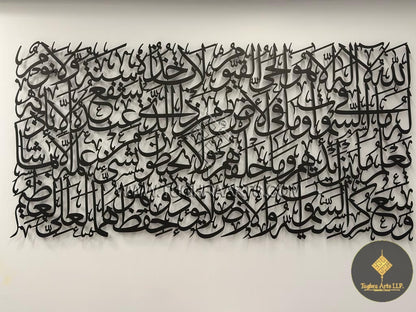 الله لا إله إلا هو الحي القيوم لا تأخذه سنة ولا نوم
له ما في السموات وما في الأرض من ذا الذي يشفع عنده إلا بإذنه
يعلم ما بين أيديهم وما خلفهم ولا يحيطون بشيء من علمه إلا بما شاء
وسع كرسيه السموات والأرض ولا يؤده حفظهما وهو العلي العظيم
Toghra Arts LLP.